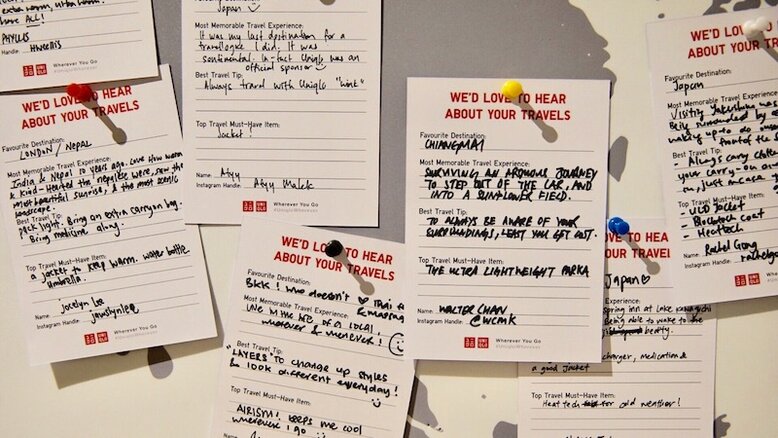 have ALL!
PHYLLIS
Handle:
Wherever You Go
#UniqloWherever
WE'D LOVE TO HEAR
ABOUT YOUR TRAVELS
Favourite Destination:
LONDON / NEPAL
Most Memorable Travel Experience:
India & Nepal 10 years ago. Love how warm
& kind-hearted the nepalese were, saw the
most beautiful sunrise, & the most scenic
landscape.
Best Travel Tip:
pack light. Bring an extra carryon bag.
Bring medicine along.
Top Travel Must-Have Item:
a jacket to keep warm. water bottle
Umbrella.
Name: Jocelyn Lee
Instagram Handle: jawslynlee
Wherever You Go
#UniqloWherever
Japan
Most Memorable Travel Experience:
It was my last destination for a
travelogue I did. It was
sentimental. In-fact Uniqlo was an
official sponsor
Best Travel Tip:
Always travel with Uniqlo "wink"
Top Travel Must-Have Item:
Jacket!
Name: Atyy
Instagram Handle: Atyy Malek
Wherever You Go
#UniqloWherever
WE'D LOVE TO HEAR
ABOUT YOUR TRAVELS
Favourite Destination:
BKK! Who doesn't Thai
Most Memorable Travel Experience:
Live in the life of a local,
wherever & whenever!
Best Travel Tip:
"LAYERS" to change up styles
& look different everyday!
Top Travel Must-Have Item:
AIRism! keeps me cool
wherever I go
WE'D LOVE TO HEAR
ABOUT YOUR TRAVELS
Favourite Destination:
CHIANGMAI
Most Memorable Travel Experience:
SURVIVING AN ARDUOUS JOURNEY
TO STEP OUT OF THE CAR, AND
INTO A SUNFLOWER FIELD.
Best Travel Tip:
TO ALWAYS BE AWARE OF YOUR
SURROUNDINGS, LEAST YOU GET LOST.
Top Travel Must-Have Item:
THE ULTRA LIGHTWEIGHT PARKA
Name: WALTER CHAN
Instagram Handle: @WCMK
Wherever You Go
#UniqloWherever
HEAR
TRAVELS
Japan
spring inn at Lake Kawaguchi
Being able to wake to the
beauty.
charger, medication &
a good jacket
Top Travel Must-Have Item:
Heattech for cold weather!
WE'D LOVE
ABOUT YOUR TRA
Favourite Destination:
Japan
Most Memorable Travel
Visiting
Being surrounded by
waking up to do
front of the
Best Travel Tip:
- Always carry
your carry-on
on, just in case
Top Travel Must-Have Item:
- ULD Jacket
- Blocktech coat
- Heattech
Name: Rachel Gong
Instagram Handle: